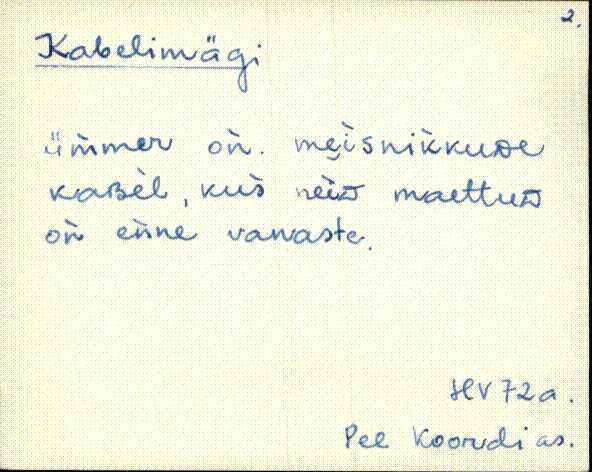 2.
Kabelimägi
ümmer on. meisnikkuDe
kaBèl, kus neiD maettuD
on enne vanaste.
HV 72a.
Pee Koordi as.